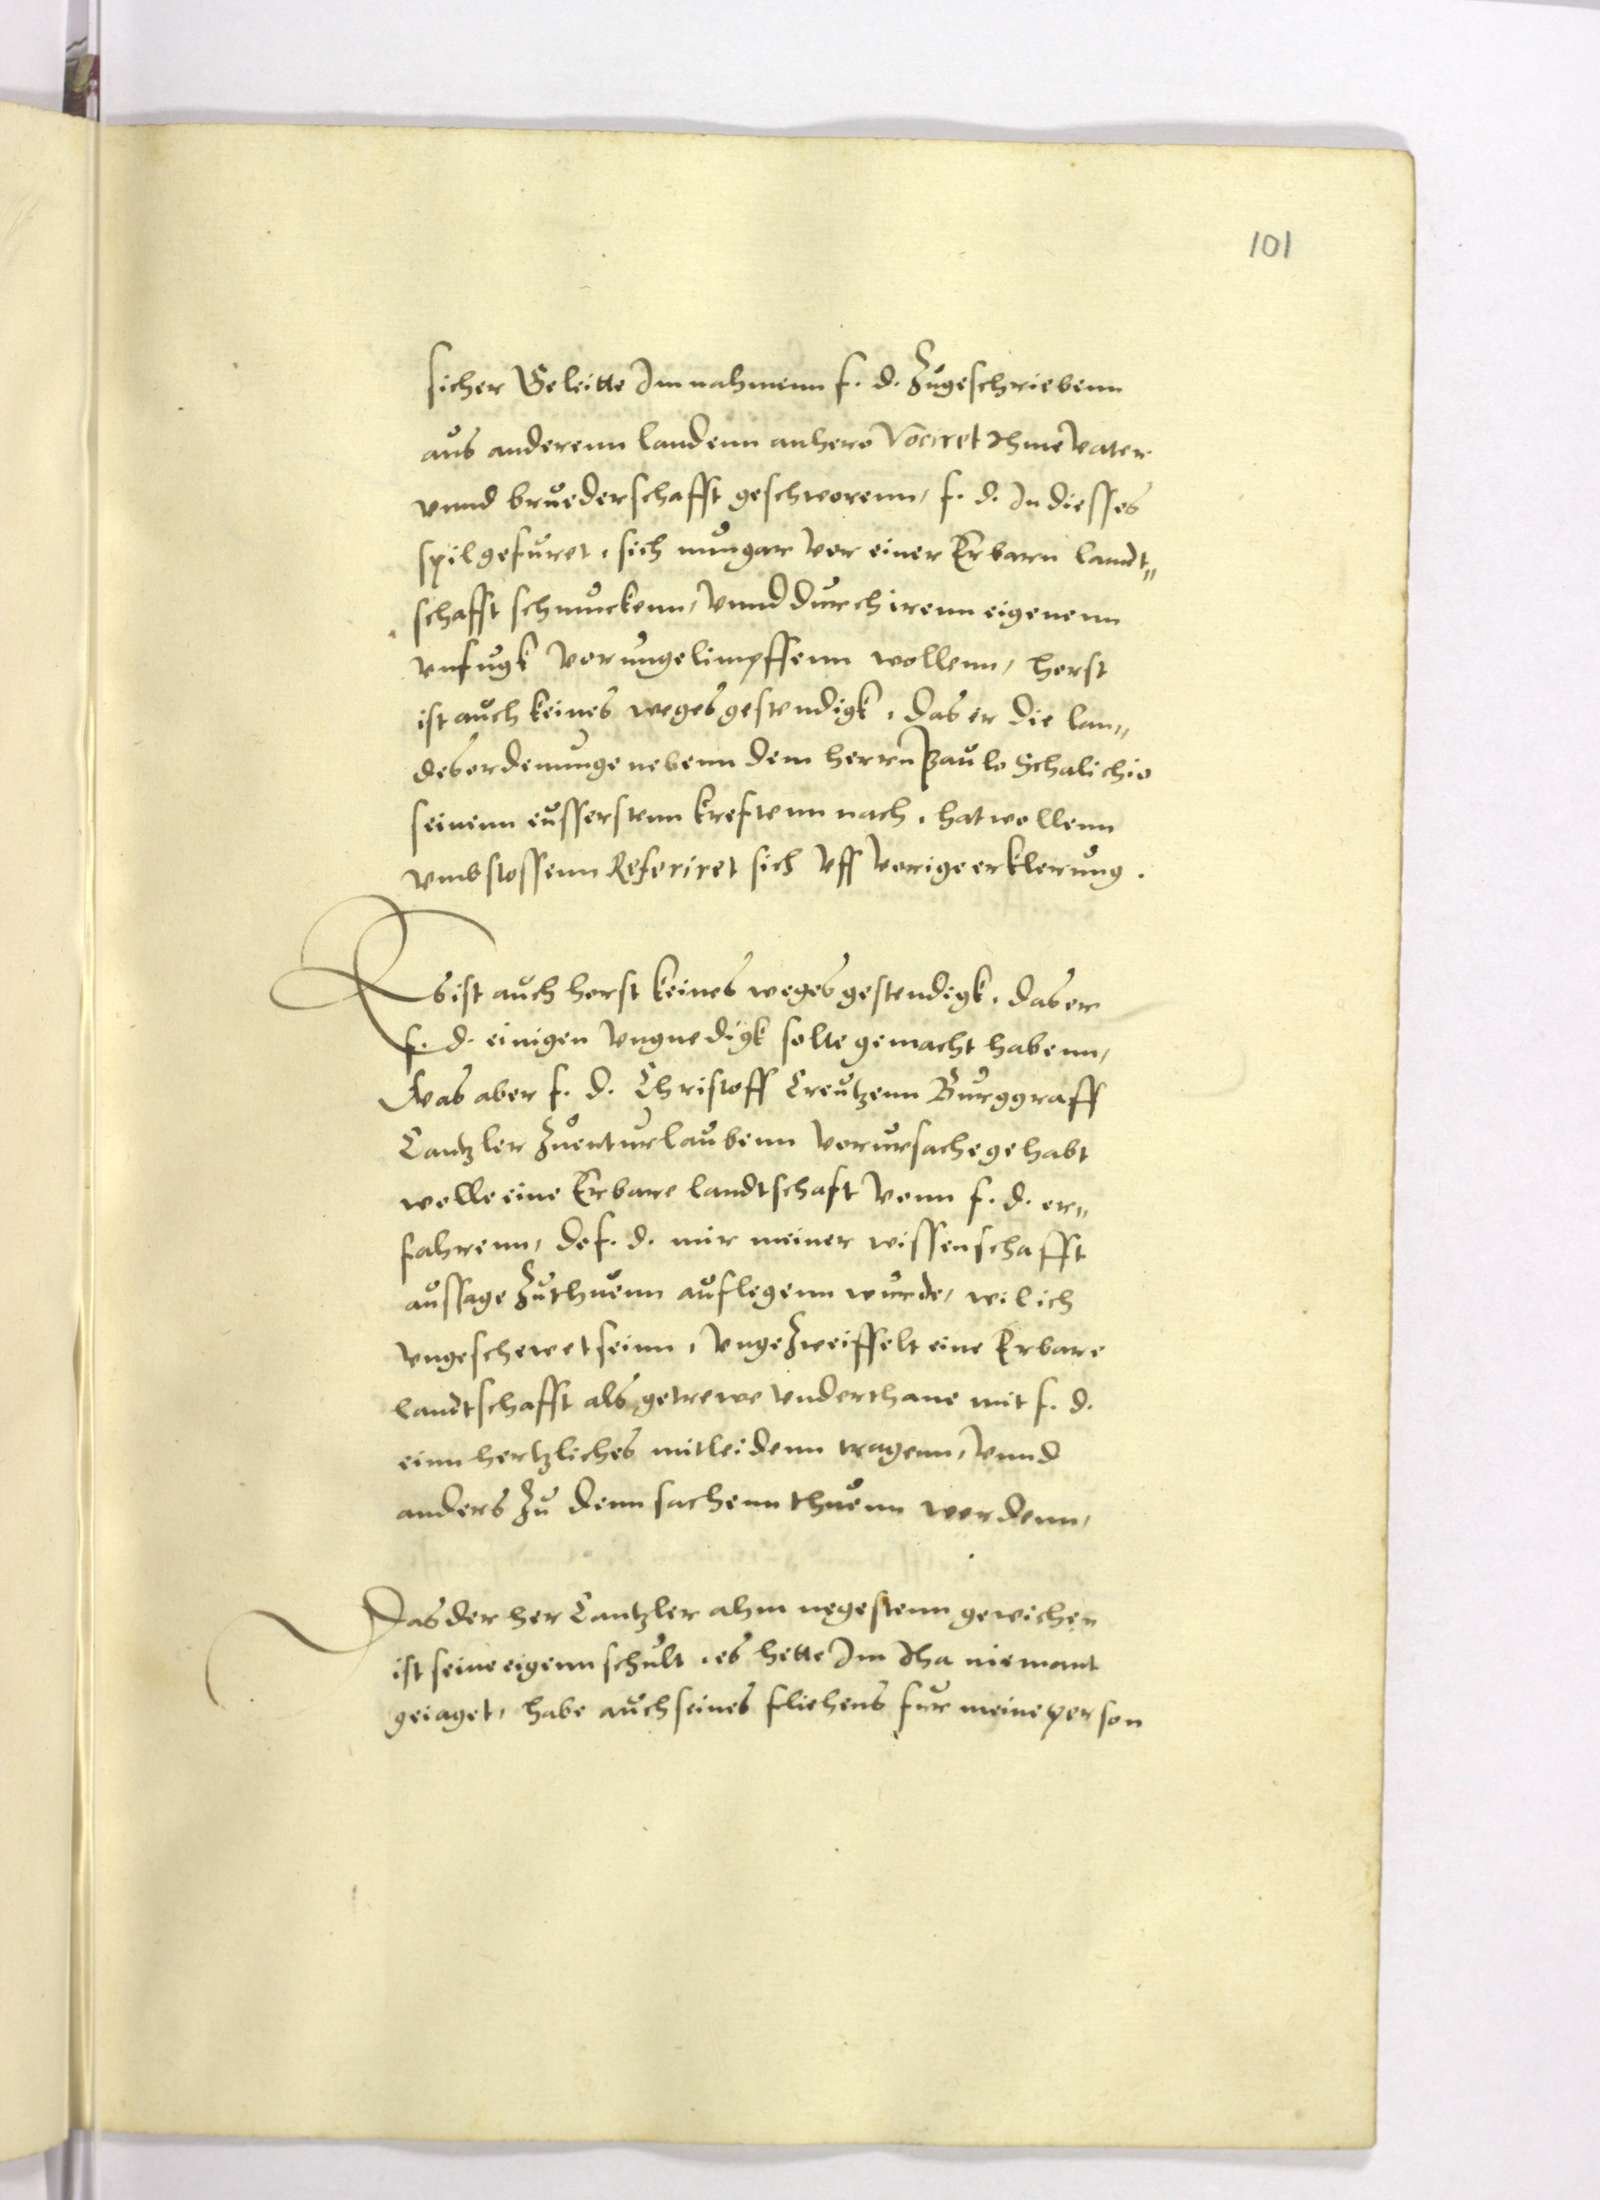 101
sicher Geleitte Im nahmenn f. d. Zugeschriebenn
aus anderenn landenn anhero Vociret Ihme Vater
vnnd bruederschafft geschworenn, f. d. In diesses
spil gefuret, sich nungar Vor einer Erbarn landt„
schafft schmuckenn, Vnnd durch irenn eigenenn
vnfugk Vorungelimpffenn wollenn, horst
ist auch keines weges gestendigk, das er die lan„
desordenunge nebenn dem herrn Paulo Schalichio
seinenn eusserstenn kreftenn nach, hat wollenn
vmbstossenn Referiret sich Vff Vorige erklerung.
Es ist auch horst keines weges gestendigk, das er
f. d. einigen Vngnedigk solte gemacht habenn,
Was aber f. d. Christoff Creutzenn Burggraff
Cantzler Zuenturlaubenn Vorursache gehabt
wolle eine Erbare landtschaft Vonn f. d. er„
fahrenn, do f. d. mir meiner wissenschafft
aussage Zuthuenn auflegenn wurde, wil ich
vngeschewet seinn, VngeZweiffelt eine Erbare
landtschafft als getrewe Vnderthane mit f. d.
einn hertzliches mitleidenn tragenn, Vnnd
anders Zu denn sachenn thuenn werdenn,
Das der her Cantzler ahm negestenn gewichen
ist seine eigenn schult, es hette Im Iha niemant
geiaget, habe auch seines fliehens fur meine person